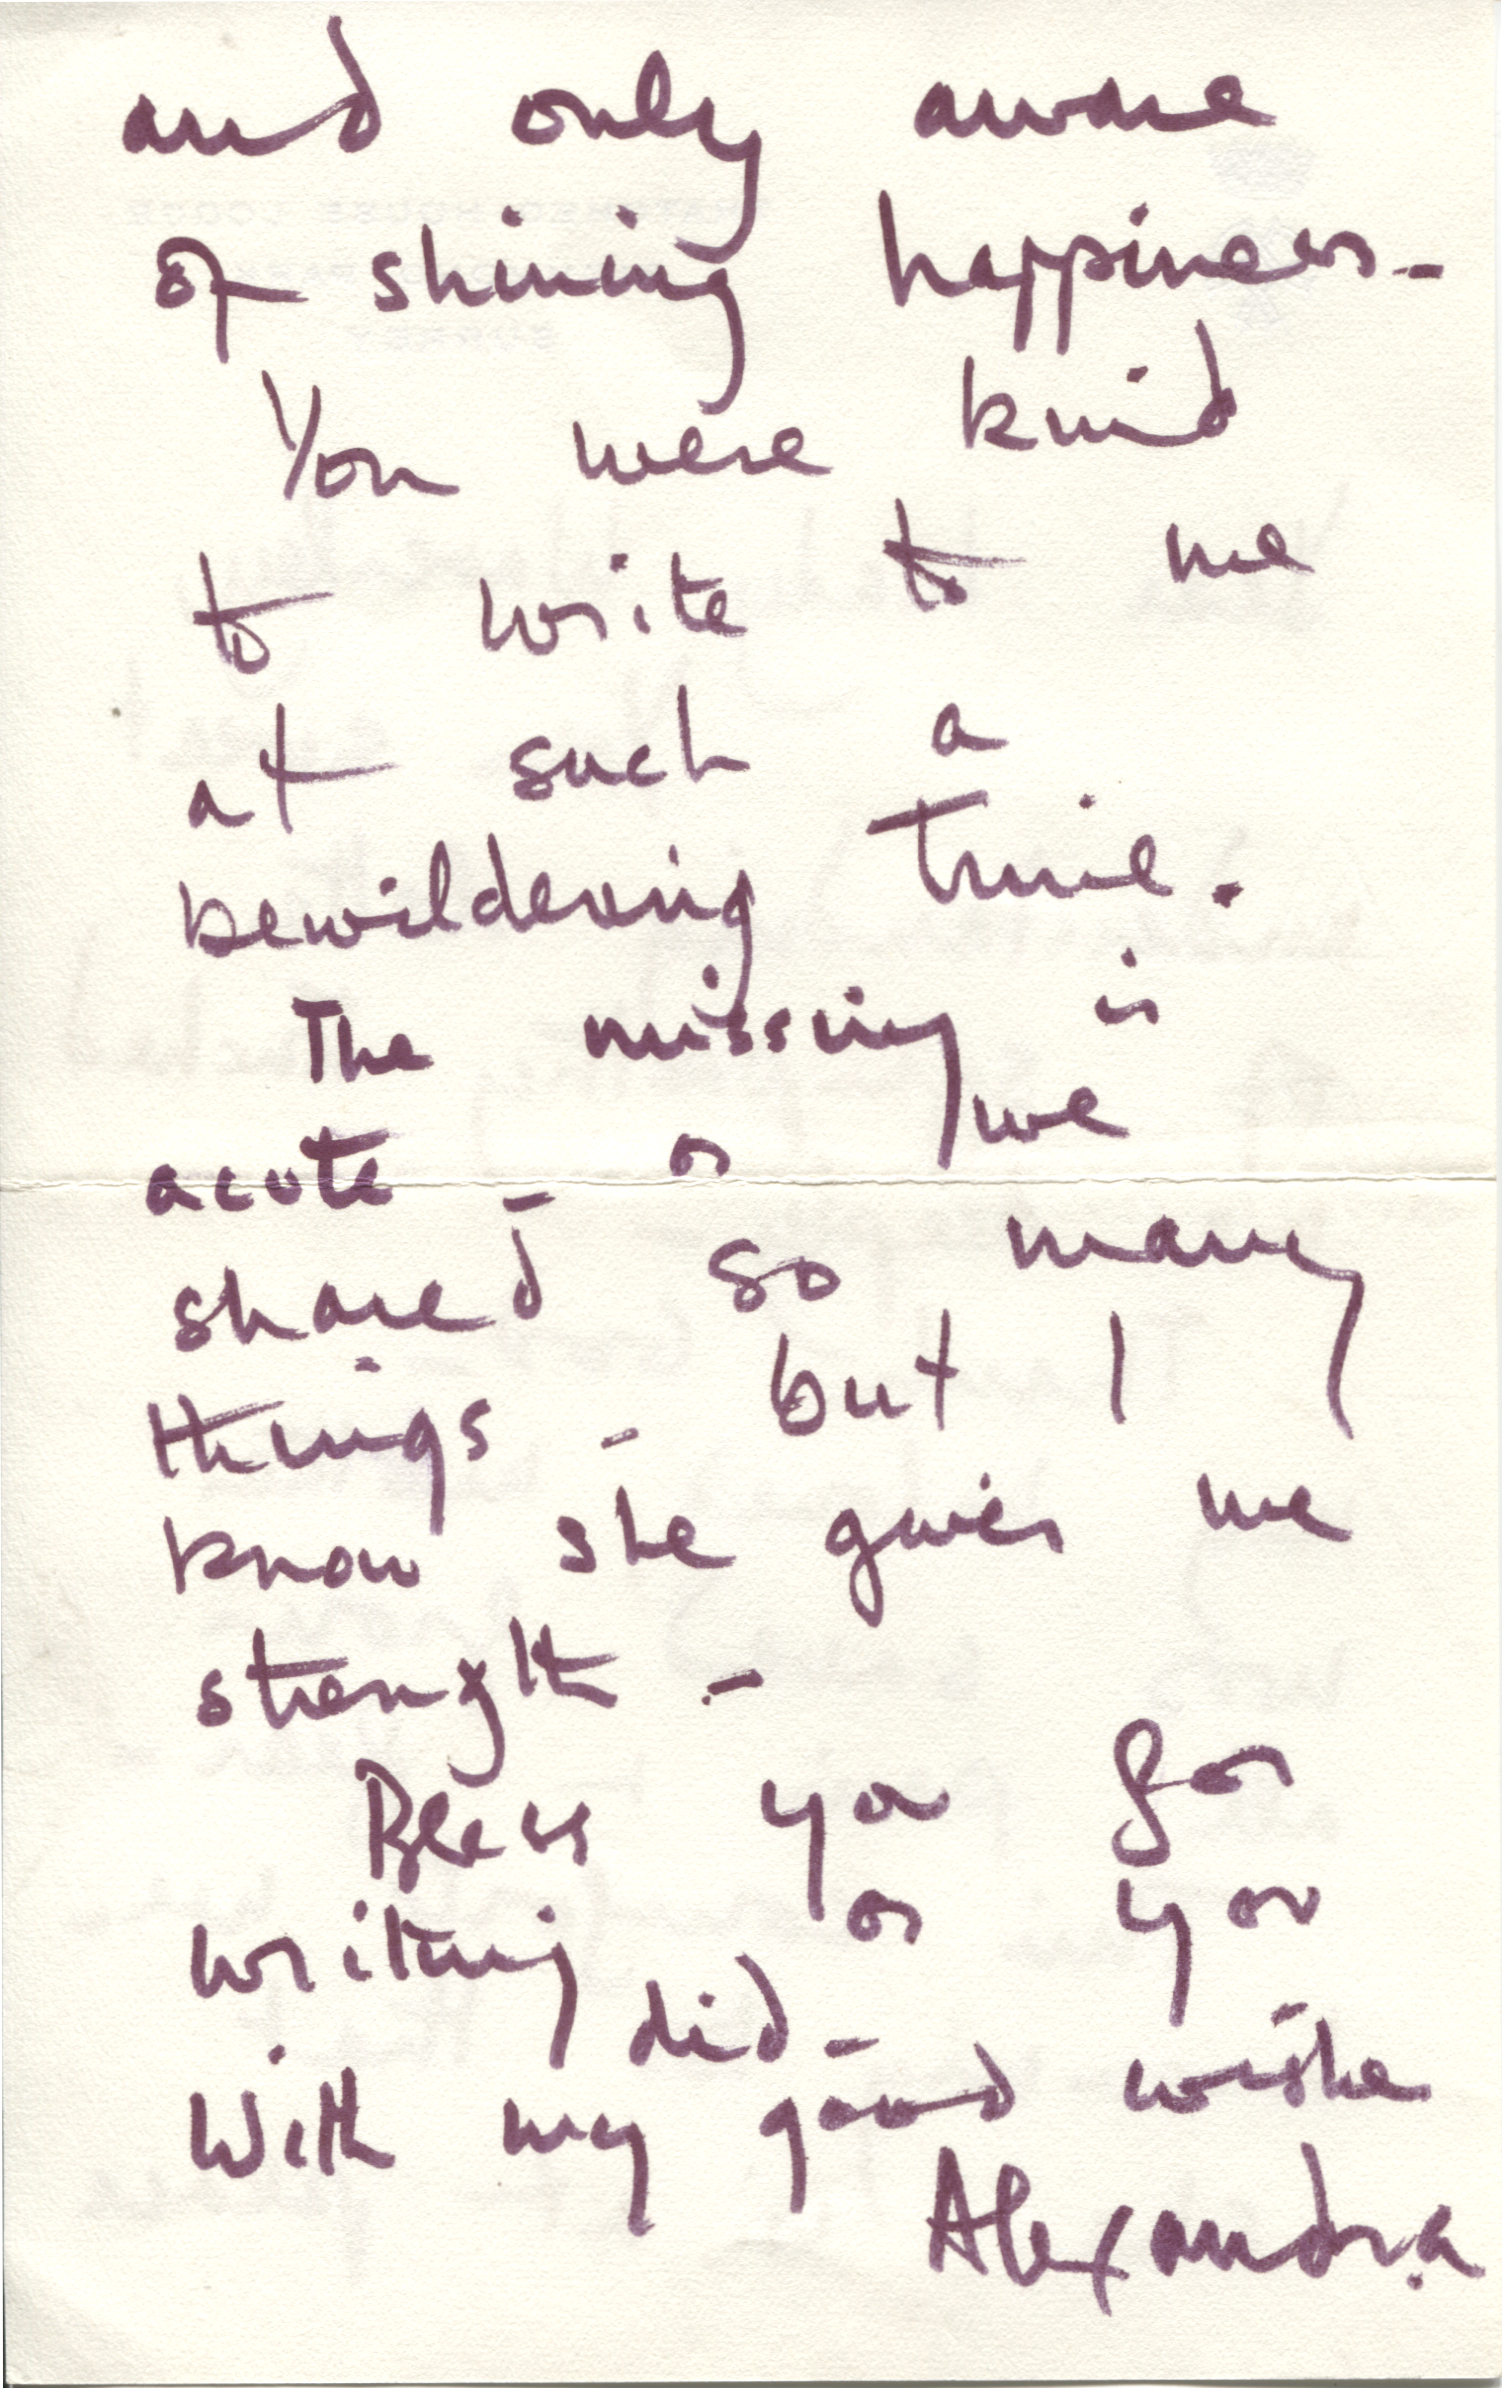 and only aware
of shining happiness -
You were kind
to write to me
at such a
bewildering time.
The missing is
acute - as we
shared so many
things - but I
know she gives me
strength -
Bless you for
writing as you
did -
With my good wishes
Alexandra